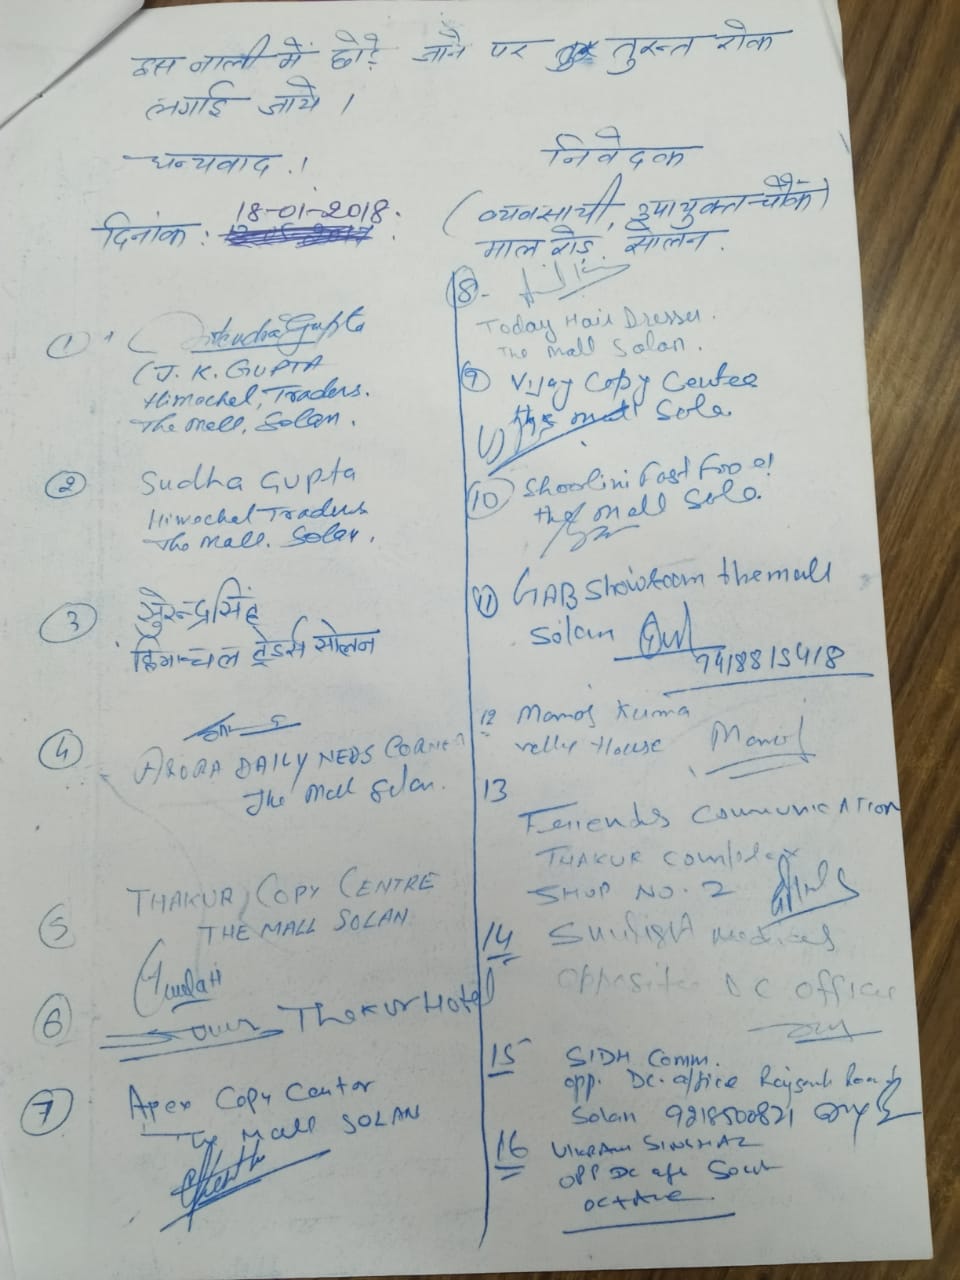 इस नाली में छोड़े जाने पर तुरन्त रोक
लगाई जाये ।
धन्यवाद .।
निवेदक
दिनांक : 18-01-2018.
(व्यवसायी, उपायुक्त-चौक)
माल रोड़, सोलन.
① Jitendra Gupta
(J. K. GUPTA
Himachal, Traders.
The Mall, Solan.
② Sudha Gupta
Himachal Traders
The Mall. Solan.
③ सुरेन्द्र सिंह
हिमाचल ट्रेडर्स सोलन
④
ARORA DAILY NEEDS CORNER
The Mall Solan.
5 THAKUR COPY CENTRE
THE MALL SOLAN
⑥ Thakur Hotel
⑦ Apex Copy Center
The Mall SOLAN
⑧.
Today Hair Dresser.
The Mall Solan.
⑨ Vijay Copy Center
the mall Sola
⑩ Shoolini Fast Food
the mall Sola.
⑪ GAB Showroom the mall
Solan
9418815418
12 Manoj Kuma
House Manoj
13
Friends Communication
THAKUR Complex
SHOP NO. 2
14 medical
opposite DC office
15 SIDH Comm.
opp. DC. office Road
Solan 9218500821
16 VIKRAM
OPP DC